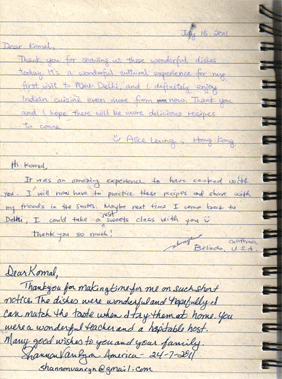 July 15, 2011
Dear Komal,
Thank you for sharing us those wonderful dishes
today. It's a wonderful cultural experience for my
first visit to New Delhi, and I definitely enjoy
Indian cuisine even more from now. Thank you
and I hope there will be more delicious recipes
to come
Alice Leung, Hong Kong
Hi Komal,
It was an amazing experience to have cooked with
you. I will now have to practice these recipes and share with
my friends in the States. Maybe next time I come back to
Delhi, I could take a sweets class with you
Thank you so much!
Belinda, California
U.S.A.
Dear Komal,
Thank you for making time for me on such short
notice. The dishes were wonderful and hopefully I
can match the taste when I try them at home. You
were a wonderful teacher and a hospitable host.
Many good wishes to you and your family.
Shannon America 24-7-2011